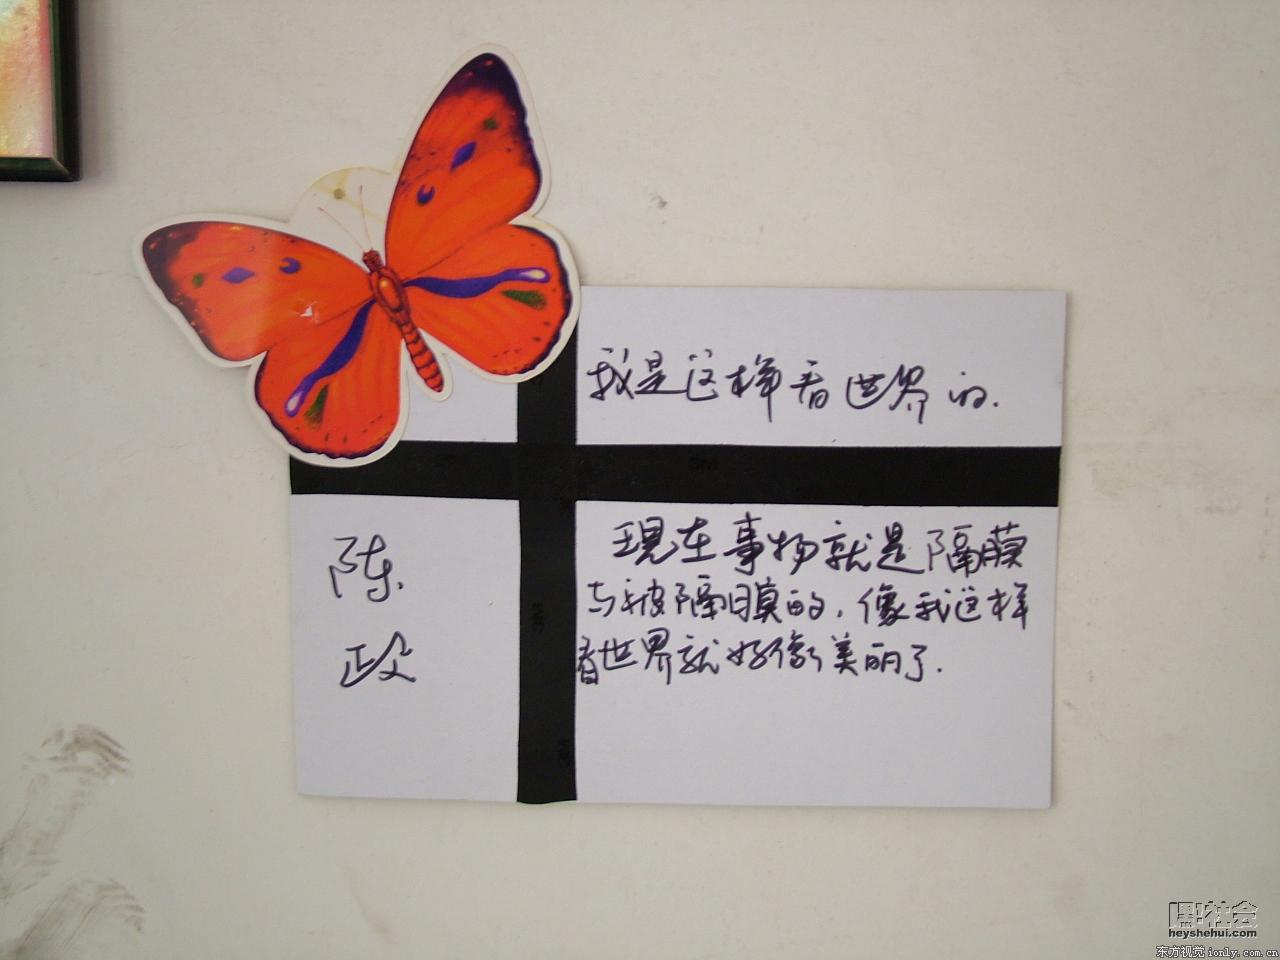 我是这样看世界的.
陈
政
现在事物就是隔膜
与被隔膜的,像我这样
看世界就好像美丽了.
黑社会
heyshehui.com
东方视觉 ionly.com.cn